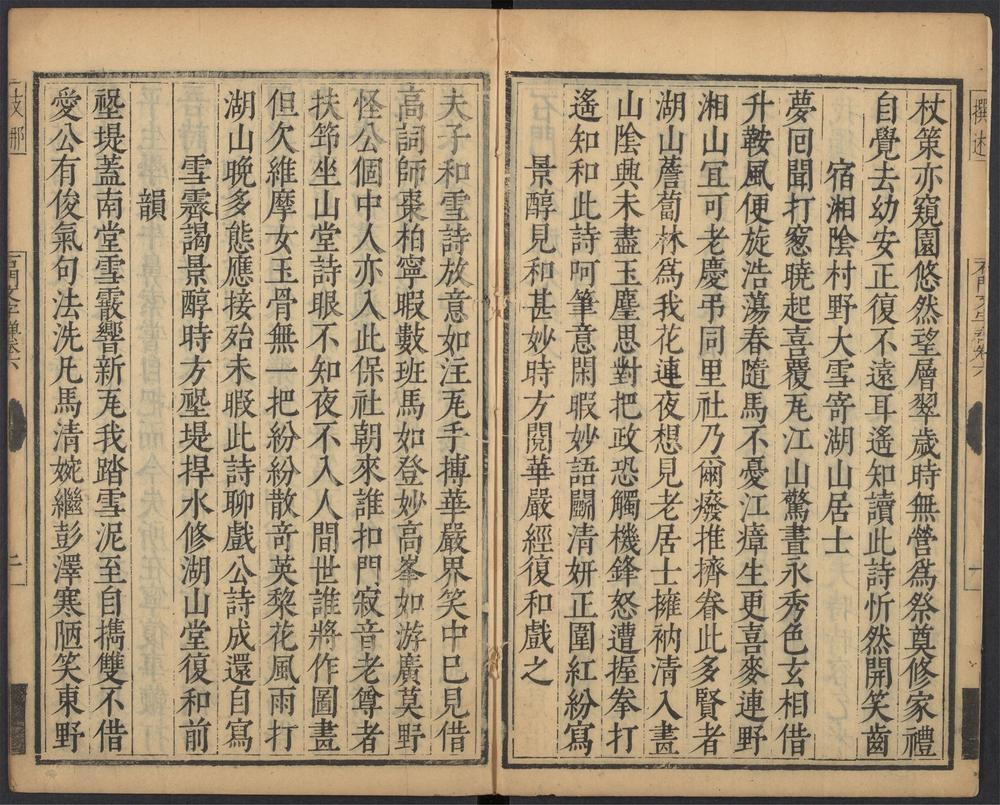 杖策亦窺園悠然望層翠歲時無營爲祭奠修家禮
自覺去幼安正復不遠耳遙知讀此詩忻然開笑齒
宿湘陰村野大雪寄湖山居士
夢回聞打窻曉起喜覆瓦江山驚晝永秀色玄相借
升鞍風便旋浩蕩春隨馬不憂江瘴生更喜麥連野
湘山宜可老慶弔同里社乃爾癈推擠眷此多賢者
湖山薝蔔林爲我花連夜想見老居士擁衲清入畫
山陰興未盡玉麈思對把政恐觸機鋒怒遭握拳打
遙知和此詩呵筆意閑暇妙語鬬清妍正圍紅紛寫
景醇見和甚妙時方閱華嚴經復和戲之
夫子和雪詩放意如注瓦手搏華嚴界笑中巳見借
高詞師棗柏寧暇數班馬如登妙高峯如游廣莫野
怪公個中人亦入此保社朝來誰扣門寂音老尊者
扶筇坐山堂詩眼不知夜不入人間世誰將作圖畫
但欠維摩女玉骨無一把紛紛散竒英黎花風雨打
湖山晚多態應接殆未暇此詩聊戲公詩成還自寫
雪霽謁景醇時方壂堤捍水修湖山堂復和前
韻
壂堤蓋南堂雪霰響新瓦我踏雪泥至自攜雙不借
愛公有俊氣句法洗凡馬清婉繼彭澤寒陋笑東野
撰述
石門文字禪卷六
一
支那
石門文字禪卷六
二